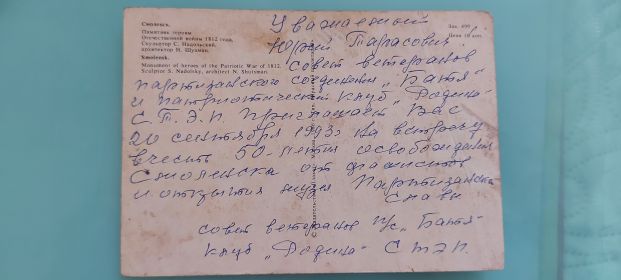 Смоленск.
Памятник героям
Отечественной войны 1812 года.
Скульптор С. Надольский,
архитектор Н. Шуцман.
Smolensk.
Monument of heroes of the Patriotic War of 1812.
Sculptor S. Nadolsky, architect N. Shutsman.
Зак. 499
Цена 10 коп.
Уважаемый
Юрий Тарасович
Совет ветеранов
партизанского соединения „Батя"
и патриотический клуб „Родина"
С.Т.Э.П. приглашает Вас
20 сентября 1993г на встречу
в честь 50-летия освобождения
Смоленска от фашистов
и открытия музея Партизанской
славы
совет ветеранов п/с „Батя"
клуб „Родина" СТЭП.